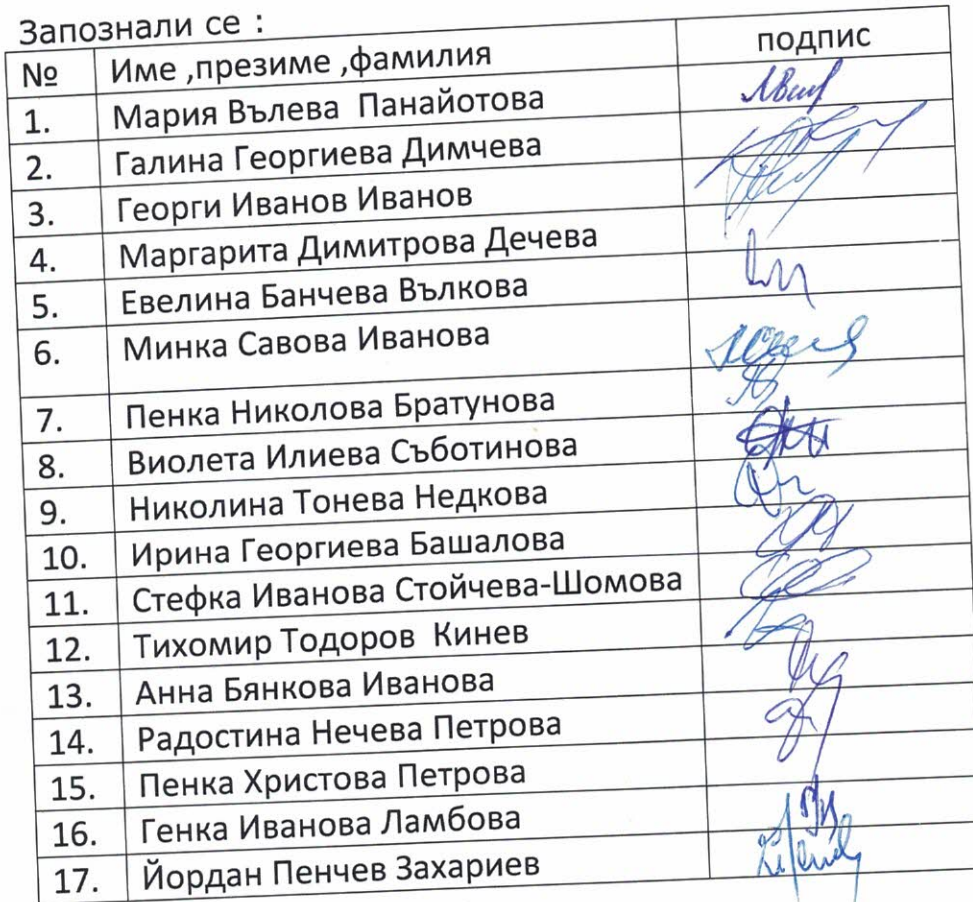 Запознали се :
№ Име ,презиме ,фамилия подпис
1. Мария Вълева Панайотова
2. Галина Георгиева Димчева
3. Георги Иванов Иванов
4. Маргарита Димитрова Дечева
5. Евелина Банчева Вълкова
6. Минка Савова Иванова
7. Пенка Николова Братунова
8. Виолета Илиева Съботинова
9. Николина Тонева Недкова
10. Ирина Георгиева Башалова
11. Стефка Иванова Стойчева-Шомова
12. Тихомир Тодоров Кинев
13. Анна Бянкова Иванова
14. Радостина Нечева Петрова
15. Пенка Христова Петрова
16. Генка Иванова Ламбова
17. Йордан Пенчев Захариев